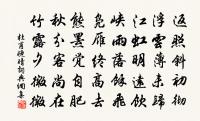 返照斜初徹
浮雲薄未歸
江虹明遠飲
峽雨落餘飛
鳧雁終高去
熊羆覺自肥
秋分客尚在
竹露夕微微
杜甫晚晴詞典網集